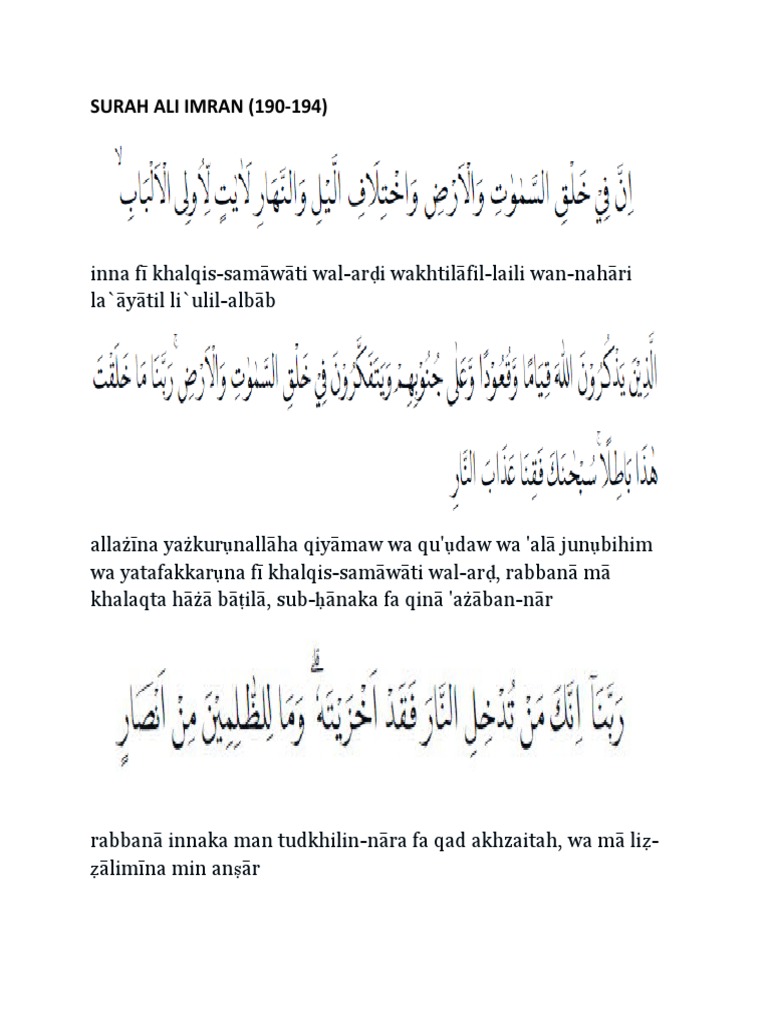 SURAH ALI IMRAN (190-194)
اِنَّ فِيْ خَلْقِ السَّمٰوٰتِ وَالْاَرْضِ وَاخْتِلَافِ الَّيْلِ وَالنَّهَارِ لَاٰيٰتٍ لِّاُولِى الْاَلْبَابِۙ
inna fī khalqis-samāwāti wal-arḍi wakhtilāfil-laili wan-nahāri
la`āyātil li`ulil-albāb
الَّذِيْنَ يَذْكُرُوْنَ اللّٰهَ قِيَامًا وَّقُعُوْدًا وَّعَلٰى جُنُوْبِهِمْ وَيَتَفَكَّرُوْنَ فِيْ خَلْقِ السَّمٰوٰتِ وَالْاَرْضِۚ رَبَّنَا مَا خَلَقْتَ
هٰذَا بَاطِلًاۚ سُبْحٰنَكَ فَقِنَا عَذَابَ النَّارِ
allażīna yażkurụnallāha qiyāmaw wa qu'ụdaw wa 'alā junụbihim
wa yatafakkarụna fī khalqis-samāwāti wal-arḍ, rabbanā mā
khalaqta hāżā bāṭilā, sub-ḥānaka fa qinā 'ażāban-nār
رَبَّنَآ اِنَّكَ مَنْ تُدْخِلِ النَّارَ فَقَدْ اَخْزَيْتَهٗ ۗ وَمَا لِلظّٰلِمِيْنَ مِنْ اَنْصَارٍ
rabbanā innaka man tudkhilin-nāra fa qad akhzaitah, wa mā liẓ-
ẓālimīna min anṣār